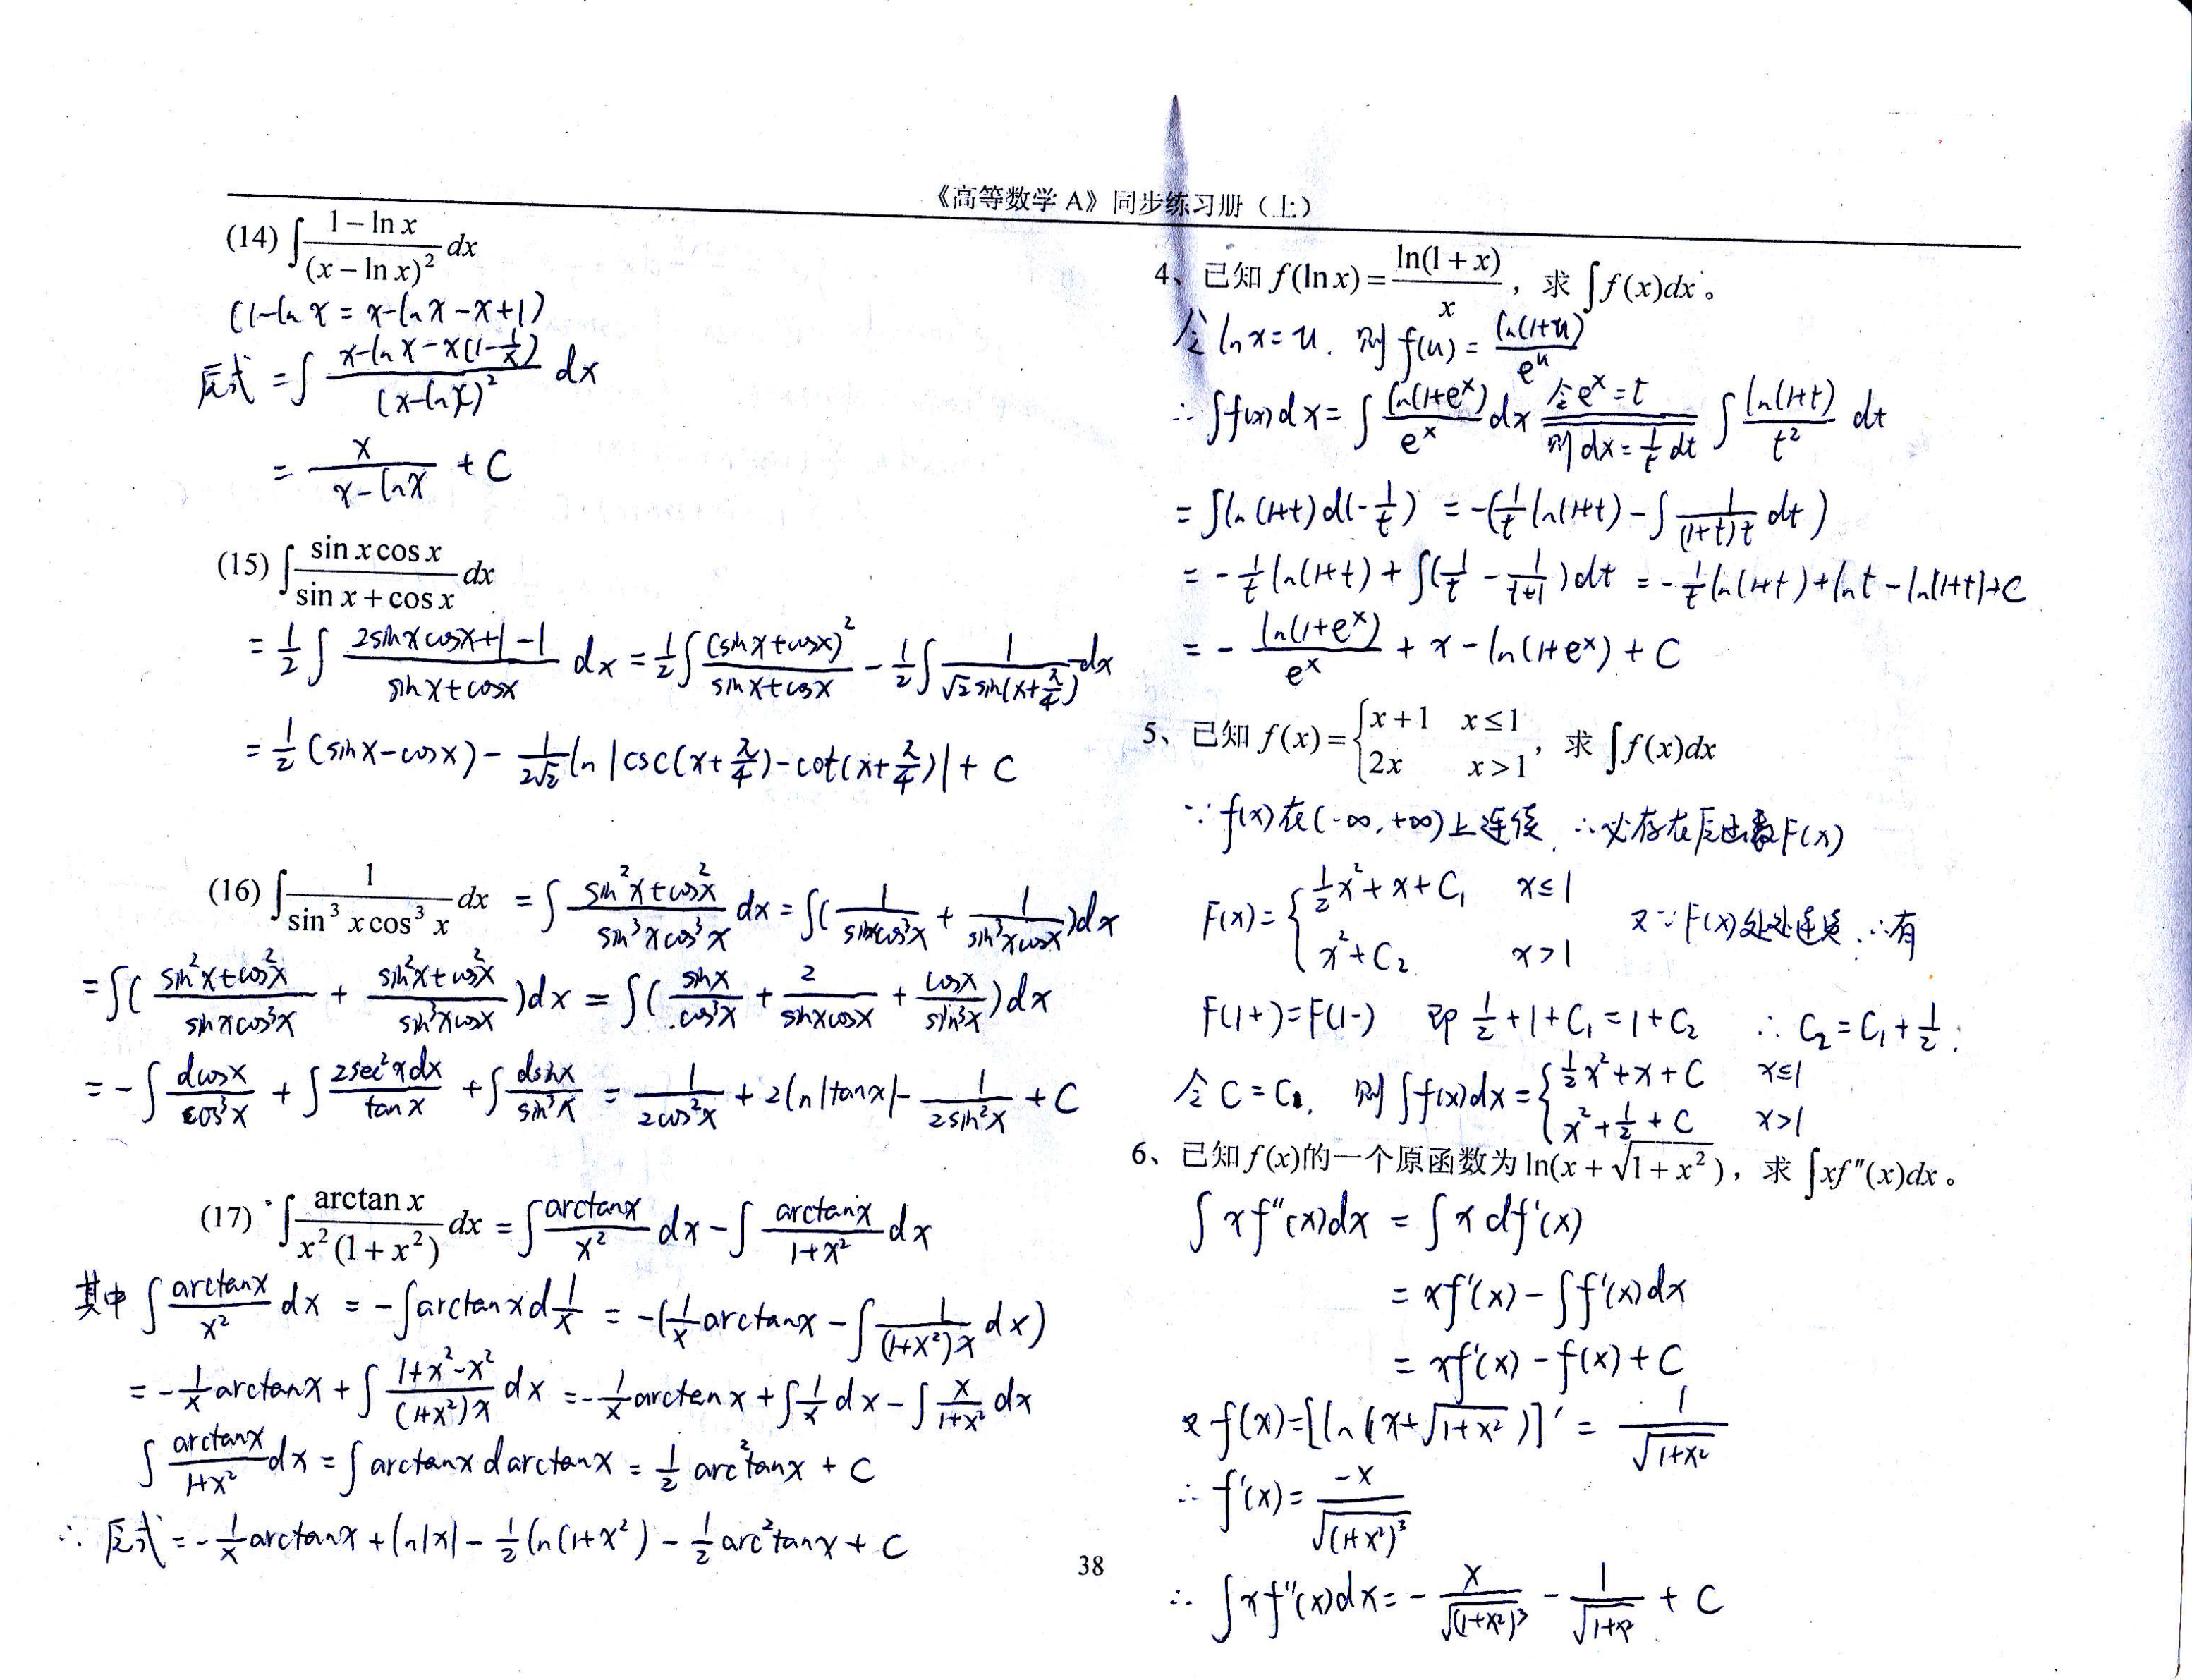 《高等数学 A》同步练习册（上）
(14) ∫ (1 − ln x)/(x − ln x)² dx
(1-ln x = x-ln x - x+1)
原式 = ∫ (x-ln x - x(1-1/x))/(x-ln x)² dx
= x/(x-ln x) + C
(15) ∫ (sin x cos x)/(sin x + cos x) dx
= 1/2 ∫ (2sinxcosx+1-1)/(sinx+cosx) dx = 1/2 ∫ (sinx+cosx)²/(sinx+cosx) - 1/2 ∫ 1/(√2 sin(x+π/4)) dx
= 1/2 (sinx-cosx) - 1/(2√2) ln |csc(x+π/4)-cot(x+π/4)| + C
(16) ∫ 1/(sin³ x cos³ x) dx = ∫ (sin²x+cos²x)/(sin³xcos³x) dx = ∫( 1/(sinxcos³x) + 1/(sin³xcosx) )dx
= ∫( (sin²x+cos²x)/(sinxcos³x) + (sin²x+cos²x)/(sin³xcosx) )dx = ∫( sinx/cos³x + 2/(sinxcosx) + cosx/sin³x )dx
= -∫ dcosx/cos³x + ∫ 2sec²xdx/tanx + ∫ dsinx/sin³x = 1/(2cos²x) + 2ln|tanx| - 1/(2sin²x) + C
(17) ∫ arctan x/(x²(1+x²)) dx = ∫ arctanx/x² dx - ∫ arctanx/(1+x²) dx
其中 ∫ arctanx/x² dx = -∫arctanxd 1/x = -(1/x arctanx - ∫ 1/((1+x²)x) dx)
= -1/x arctanx + ∫ (1+x²-x²)/((1+x²)x) dx = -1/x arctanx + ∫ 1/x dx - ∫ x/(1+x²) dx
∫ arctanx/(1+x²) dx = ∫ arctanx darctanx = 1/2 arc²tanx + C
∴ 原式 = -1/x arctanx + ln|x| - 1/2 ln(1+x²) - 1/2 arc²tanx + C
4、已知 f(ln x) = ln(1+x)/x，求 ∫f(x)dx。
令 ln x = u. 则 f(u) = ln(1+u)/e^u
∴ ∫f(x)dx = ∫ ln(1+e^x)/e^x dx 令e^x=t 则dx=1/t dt ∫ ln(1+t)/t² dt
= ∫ln(1+t)d(-1/t) = -(1/t ln(1+t) - ∫ 1/((1+t)t) dt)
= -1/t ln(1+t) + ∫(1/t - 1/(t+1))dt = -1/t ln(1+t)+ln t - ln|1+t|+C
= - ln(1+e^x)/e^x + x - ln(1+e^x) + C
5、已知 f(x) = { x+1 x≤1 ; 2x x>1 ，求 ∫f(x)dx
∵ f(x)在(-∞,+∞)上连续, ∴必存在原函数F(x)
F(x) = { 1/2 x²+x+C₁ x≤1 ; x²+C₂ x>1 又∵F(x)处处连续, ∴有
F(1+)=F(1-) 即 1/2+1+C₁=1+C₂ ∴ C₂=C₁+1/2.
令 C=C₁, 则 ∫f(x)dx = { 1/2 x²+x+C x≤1 ; x²+1/2+C x>1
6、已知 f(x)的一个原函数为 ln(x+√(1+x²))，求 ∫xf″(x)dx。
∫ x f″(x)dx = ∫ x df′(x)
= xf′(x) - ∫f′(x)dx
= xf′(x) - f(x) + C
又 f(x)=[ln(x+√(1+x²))]′ = 1/√(1+x²)
∴ f′(x) = -x/√(1+x²)³
∴ ∫xf″(x)dx = - x/√(1+x²)³ - 1/√(1+x²) + C
38